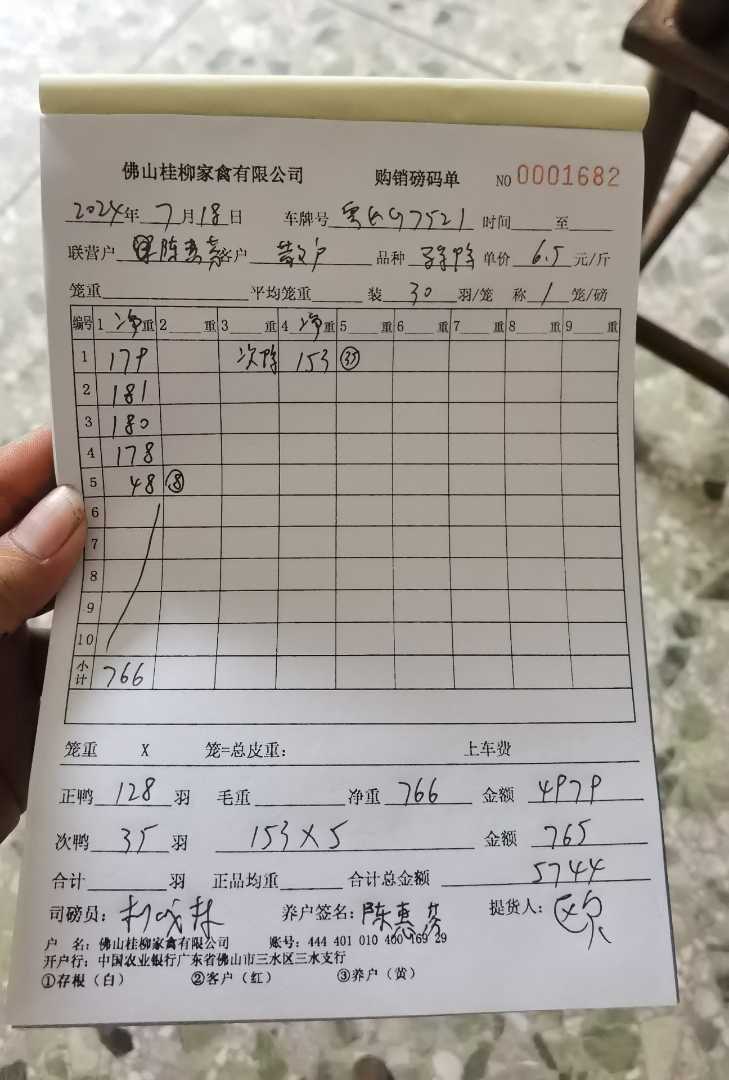 佛山桂柳家禽有限公司 购销磅码单 NO 0001682
2024年 7月18日 车牌号 7521 时间 至
联营户 陈惠芬 客户 散户 品种 单价 6.5 元/斤
笼重 平均笼重 装 30 羽/笼 称 1 笼/磅
编号 1 净重 2 重 3 重 4 净重 5 重 6 重 7 重 8 重 9 重
1 179 次鸭 153 35
2 181
3 180
4 178
5 48 8
6
7
8
9
10
小计 766
笼重 X 笼=总皮重： 上车费
正鸭 128 羽 毛重 净重 766 金额 4979
次鸭 35 羽 153×5 金额 765
合计 羽 正品均重 合计总金额 5744
司磅员： 养户签名：陈惠芬 提货人：
户 名：佛山桂柳家禽有限公司 账号：444 401 010 400 169 29
开户行：中国农业银行广东省佛山市三水区三水支行
①存根（白） ②客户（红） ③养户（黄）